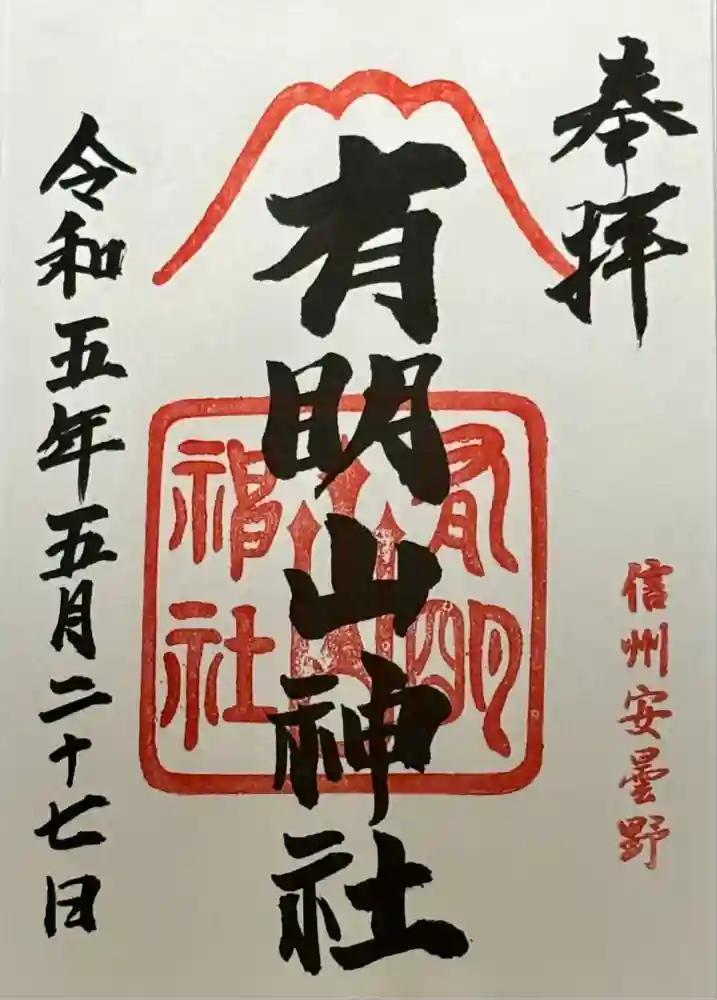 奉拝
信州安曇野
有明山神社
有明山神社
令和五年五月二十七日